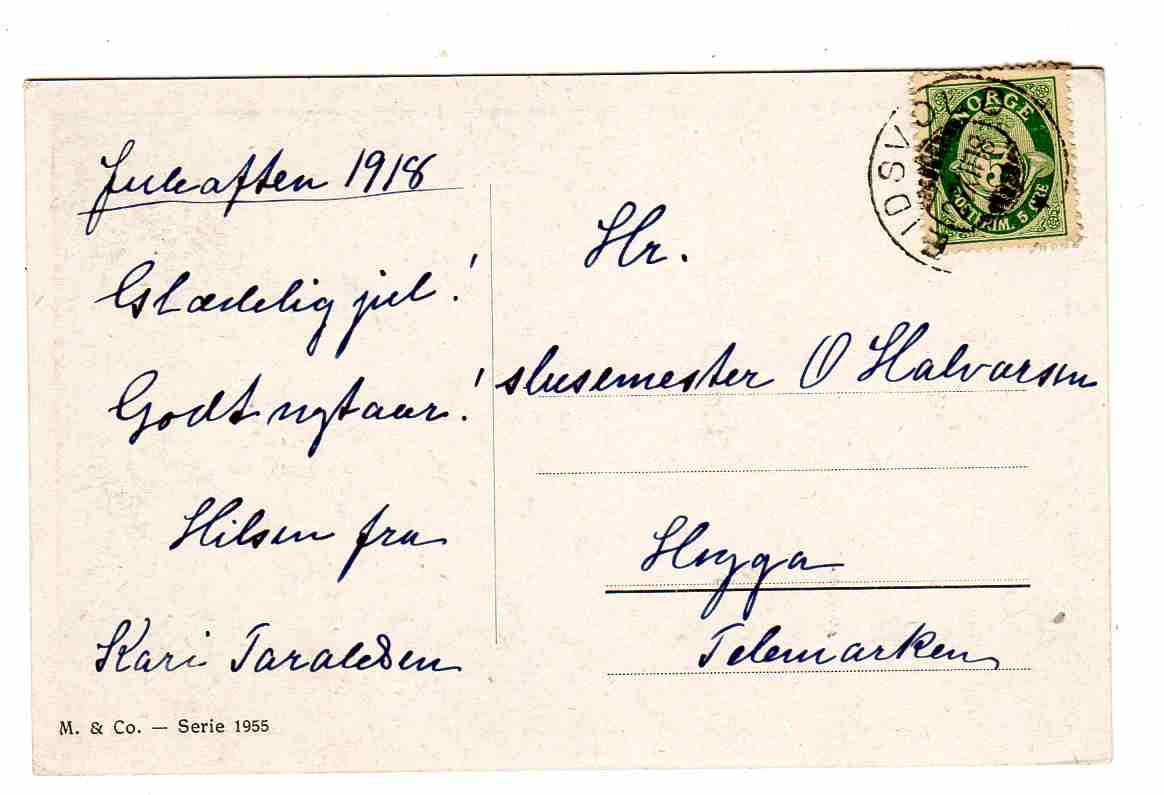 Juleaften 1918
Glædelig jul!
Godt nytaar!
Hilsen fra
Kari Taraldsen
M. & Co. — Serie 1955
NORGE
5
POSTFRIM. 5 ØRE
EIDSVOLD
Hr.
slusemester O Halvorsen
Hogga
Telemarken